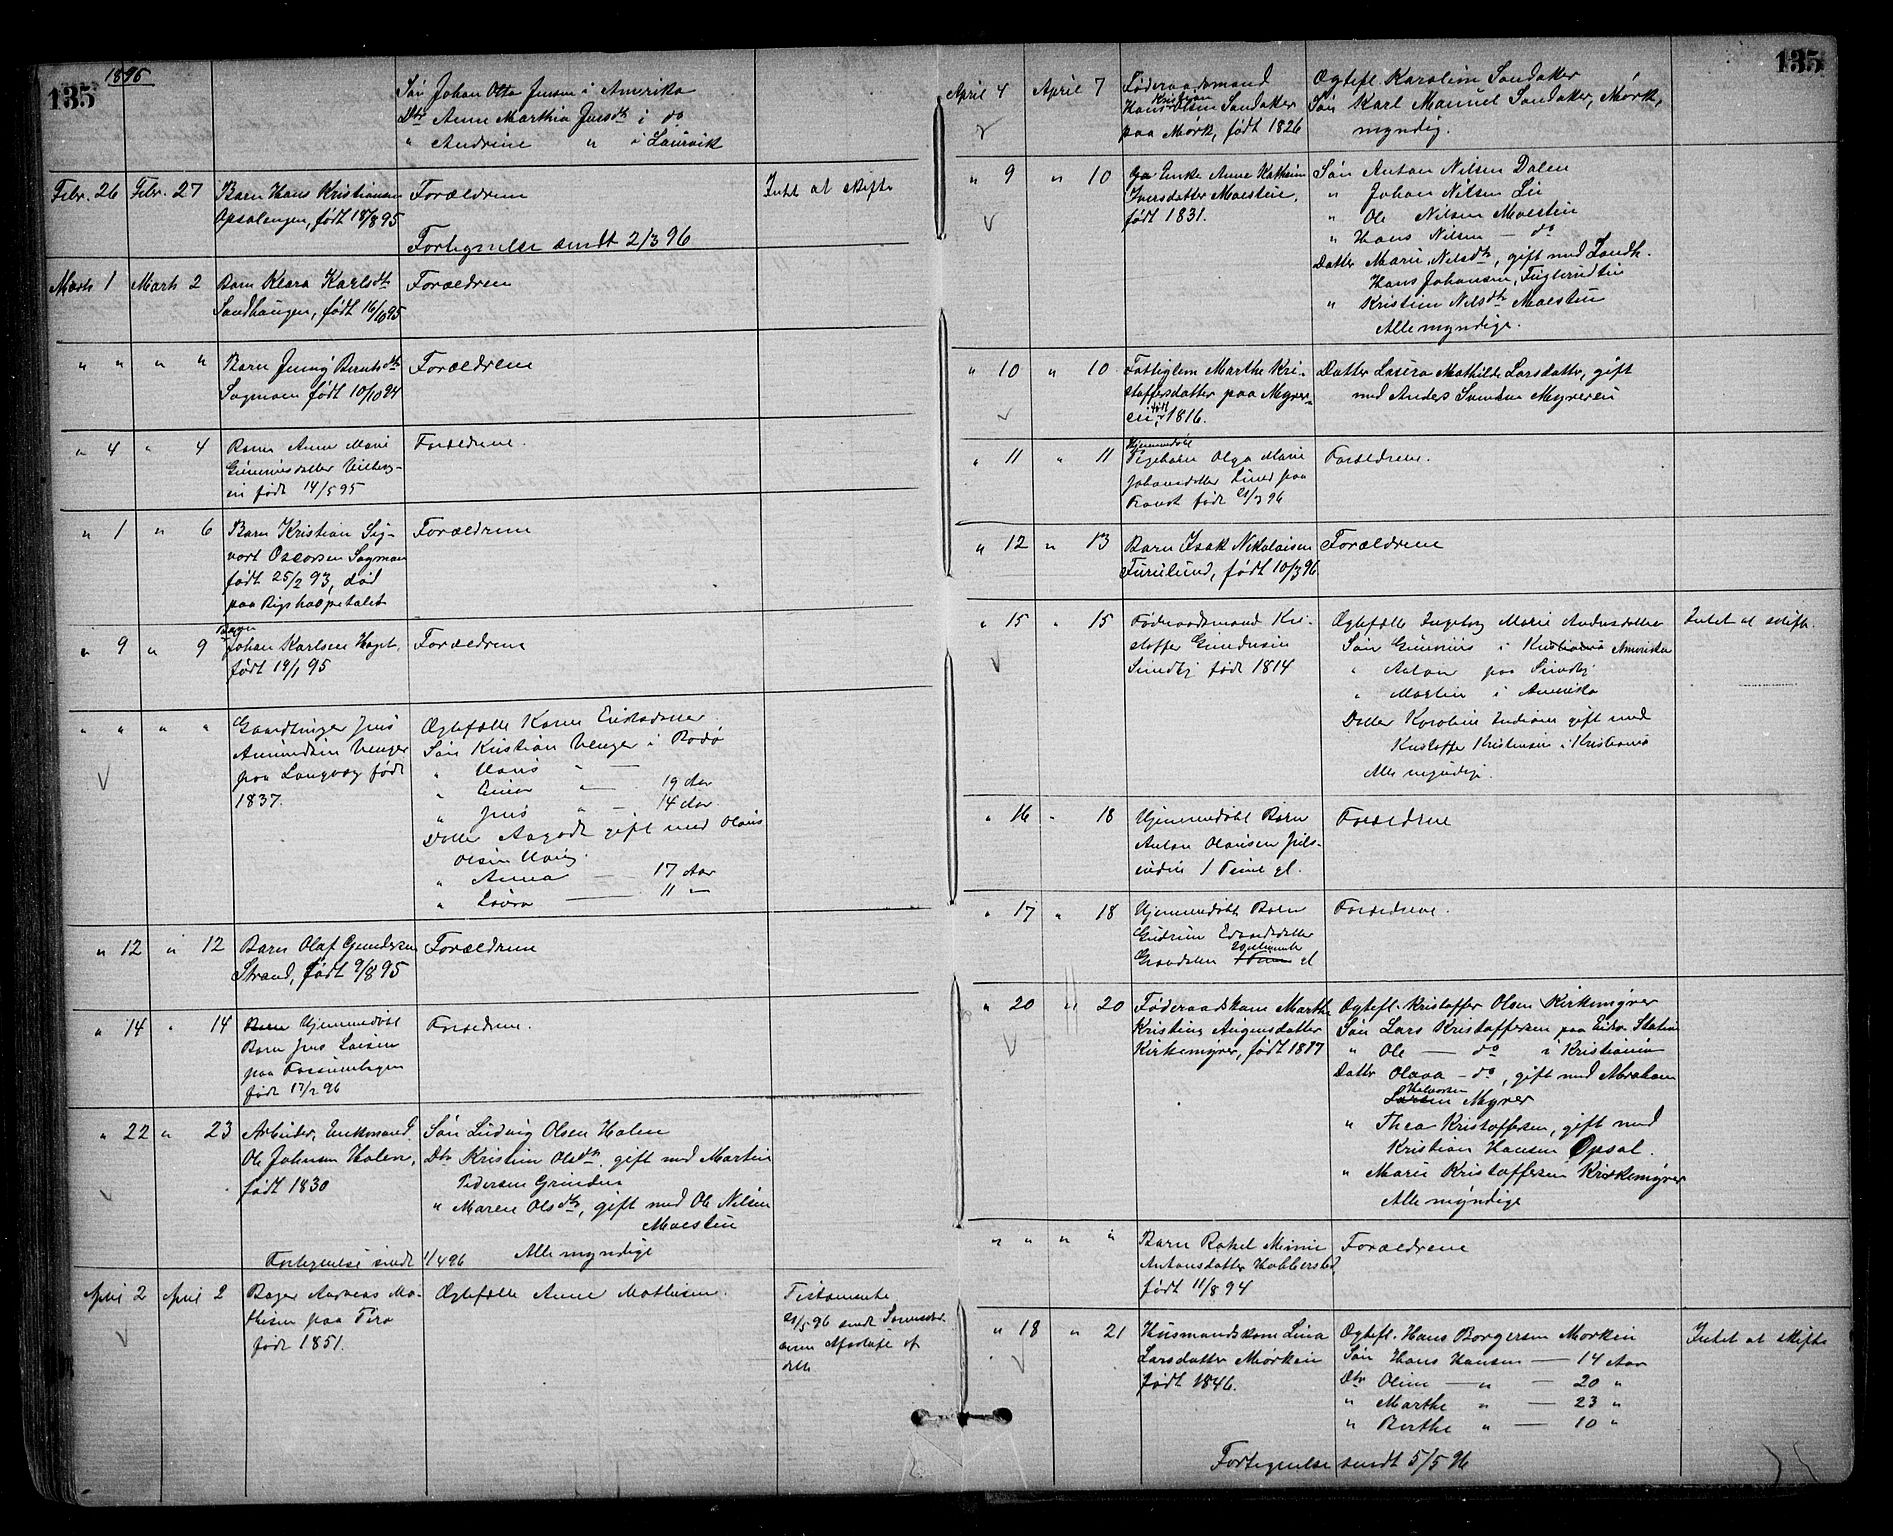 135
1896
Søn Johan Otto Jensen i Amerika
Dtr Anne Marthia Jensdtr i do
" Andrine " i Laurvik
Febr. 26 Febr. 27 Barn Hans Kristiansen Forældrene Intet at skifte
Opsalengen, født 18/8 95
Fortegnelse sendt 2/3 96
Marts 1 Marts 2 Barn Klara Karlsdtr Forældrene
Sandhaugen, født 16/10 95
" " " " Barn Jenny Berntsdtr Forældrene
Sagmoen født 10/10 94
" 4 " 4 Barn Anne Marie Forældrene.
født 14/5 95
" 1 " 6 Barn Kristian Sig- Forældrene
vart Oscarsen Sagmoen
født 25/2 93, død
paa Rigshospetalet
Barn
" 9 " 9 Johan Karlsen Forældrene
født 19/1 95
" " " " Gaardbruger Jens Ægtefælle Karen Eriksdatter
Amundsen Venger Søn Kristian Venger i Bodø
paa Langvag født " Hans " —
1837. " Einar " — 19 Aar
" Jens " — 14 Aar.
Datter Aagodt gift med Olaus
Olsen
" Anna — 17 Aar
" Laura — 11 —
" 12 " 12 Barn Olaf Gundersen Forældrene
Strand, født 9/8 95
" 14 " 14 Barn Hjemmedøbt Forældrene.
Barn Jens Larsen
paa Fossumhagen
født 17/2 96
" 22 " 23 Arbeider, Enkemand Søn Ludvig Olsen Holen
Ole Johnsen Holen, Dtr Kristine Olsdtr. gift med Martin
født 1830 Pedersen Grinden
" Maren Olsdtr, gift med Ole Nilsen
Moestuen
Fortegnelse sendt 1/4 96 Alle myndige
April 2 April 2 Bager Andreas Ma- Ægtefælle Anne Mathisen. Testamente
thisen paa 21/5 96 sendt
født 1851. af
dette
135
April 4 April 7 Føderaadsmand Ægtefl. Karoline Sandaker
Kristian
Hans Olsen Sandaker Søn Karl Manuel Sandaker, Mørk,
paa Mørk, født 1826 myndig.
" 9 " 10 Enke Anne Kathrine Søn Anton Nilsen Dalen
Iversdatter Moestuen, " Johan Nilsen Lie
født 1831. " Ole Nilsen Moestuen
" Hans Nilsen — do
Datter Marie Nilsdtr, gift med Landh.
Hans Johansen, Fuglerudstuen
" Kristine Nilsdtr Moestuen
Alle myndige.
" 10 " 10 Fattiglem Marthe Kri- Datter Laura Mathilde Larsdatter, gift
stoffersdatter paa Myrer- med Anders Svendsen Myrereie
født
eie, 1816.
Hjemmedøbt
" 11 " 11 Pigebarn Olga Marie Forældrene.
Johansdatter Lund paa
født 21/3 96
" 12 " 13 Barn Isak Nikolaisen Forældrene
Furulund, født 10/3 96
" 15 " 15 Føderaadsmand Kri- Ægtefælle Ingeborg Marie Andersdatter Intet at skifte.
stoffer Gundersen Søn Gunerius i Kristiania Amerika
Sundby født 1814 " Anton paa Sundby
" Martin i Amerika
Datter Karoline gift med
Kristoffer Kristensen i Kristiania
Alle myndige.
" 16 " 18 Hjemmedøbt Barn Forældrene
Anton Olausen
1 Time gl.
" 17 " 18 Hjemmedøbt Barn Forældrene.
Gudrun Edvardsdatter
20 Minutter
1 Time gl
" 20 " 20 Føderaadskone Marthe Ægtefl. Kristoffer Olsen Kirkemyrer
Kristine Augensdatter Søn Lars Kristoffersen paa Eidsv. Station
Kirkemyrer, født 1817 " Ole — do i Kristiania
Datter Olava — do, gift med Abraham
Halvorsen
Larsen Myrer
" Thea Kristoffersen, gift med
Kristian Hansen Opsal.
" Marie Kristoffersen Kirkemyrer
Alle myndige
" " " " Barn Rakel Minnie Forældrene
Antonsdatter Habbersted,
født 11/8 94
" 18 " 21 Husmandskone Lina Ægtefl. Hans Borgersen Mørkeie Intet at skifte
Larsdatter Mørkeie Søn Hans Hansen — 14 Aar
født 1846. Dtr Oline — " — 20 "
" Marthe " — 23 "
" Berthe " — 10 "
Fortegnelse sendt 5/5 96